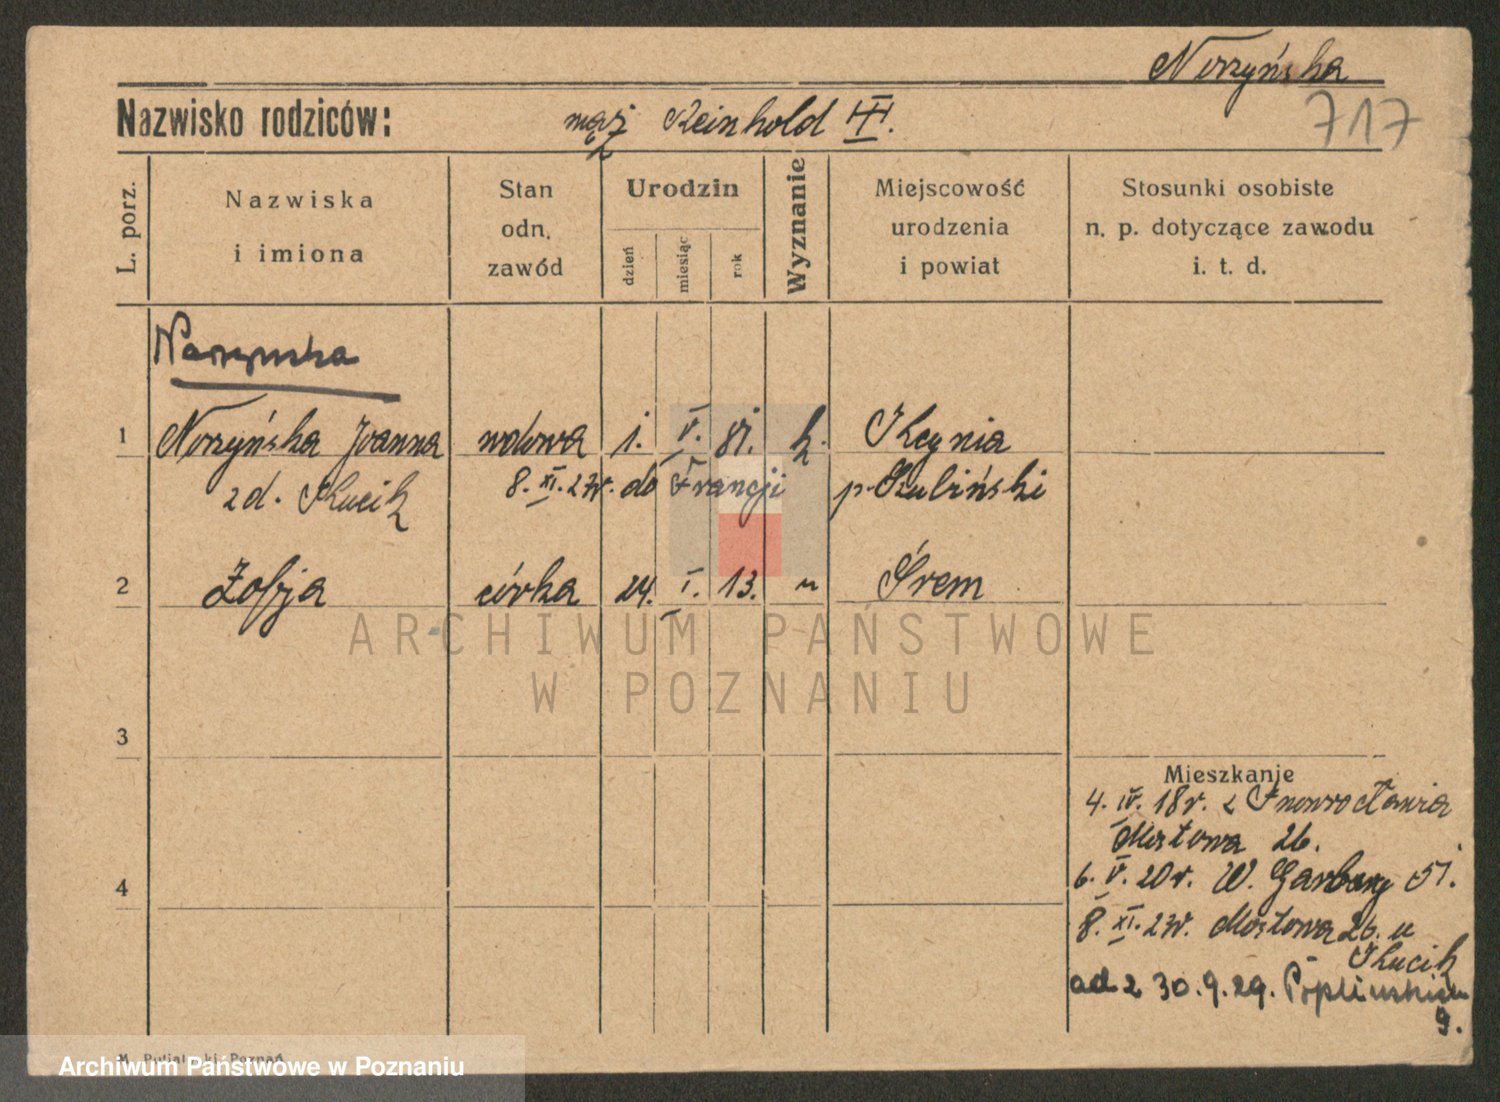 Norzyńska
717
Nazwisko rodziców: mąż Reinhold III.
L. porz.
Nazwiska i imiona
Stan odn. zawód
Urodzin
dzień miesiąc rok
Wyznanie
Miejscowość urodzenia i powiat
Stosunki osobiste n. p. dotyczące zawodu i. t. d.
Narzynska
1 Norzyńska Joanna wdowa 1. V. 81. k. Kcynia
zd. Kucik 8. XI. 27r. do Francji p. Szubiński
2 Zofja córka 24. I. 13. " Śrem
3
Mieszkanie
4. IV. 18r. z Inowrocławia
Mostowa 26.
4
6. V. 20r. W. Garbary 51.
8. XI. 27r. Mostowa 26. u
Kucik
ad 2 30.9.29.
9.
ARCHIWUM PAŃSTWOWE
W POZNANIU
Archiwum Państwowe w Poznaniu